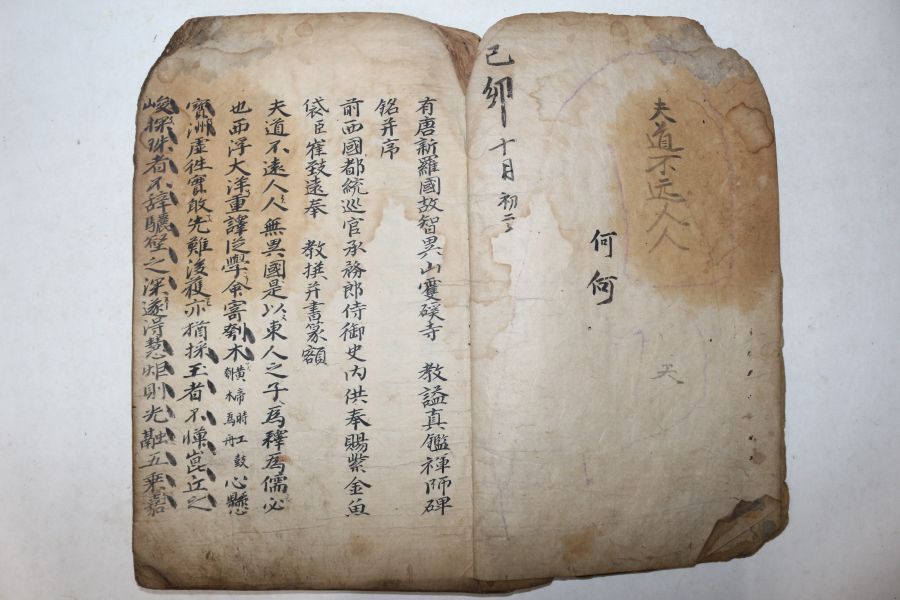 夫道不远人人
天
何何
己卯十月初二
有唐新羅國故智異山雙磎寺 教謚真鑑禪師碑
銘并序
前西國都統巡官承務郎侍御史內供奉賜紫金魚
袋臣崔致遠奉 教撰并書篆額
夫道不遠人人無異國是以東人之子為釋為儒必
也西浮大洋重譯從學命寄刳木黃帝時工鼓刳木為舟心懸
寶洲虛徃實歸先難後獲亦猶採玉者不憚崑丘之
峻採珠者不辭驪壑之深遂得慧炬則光融五乘嘉